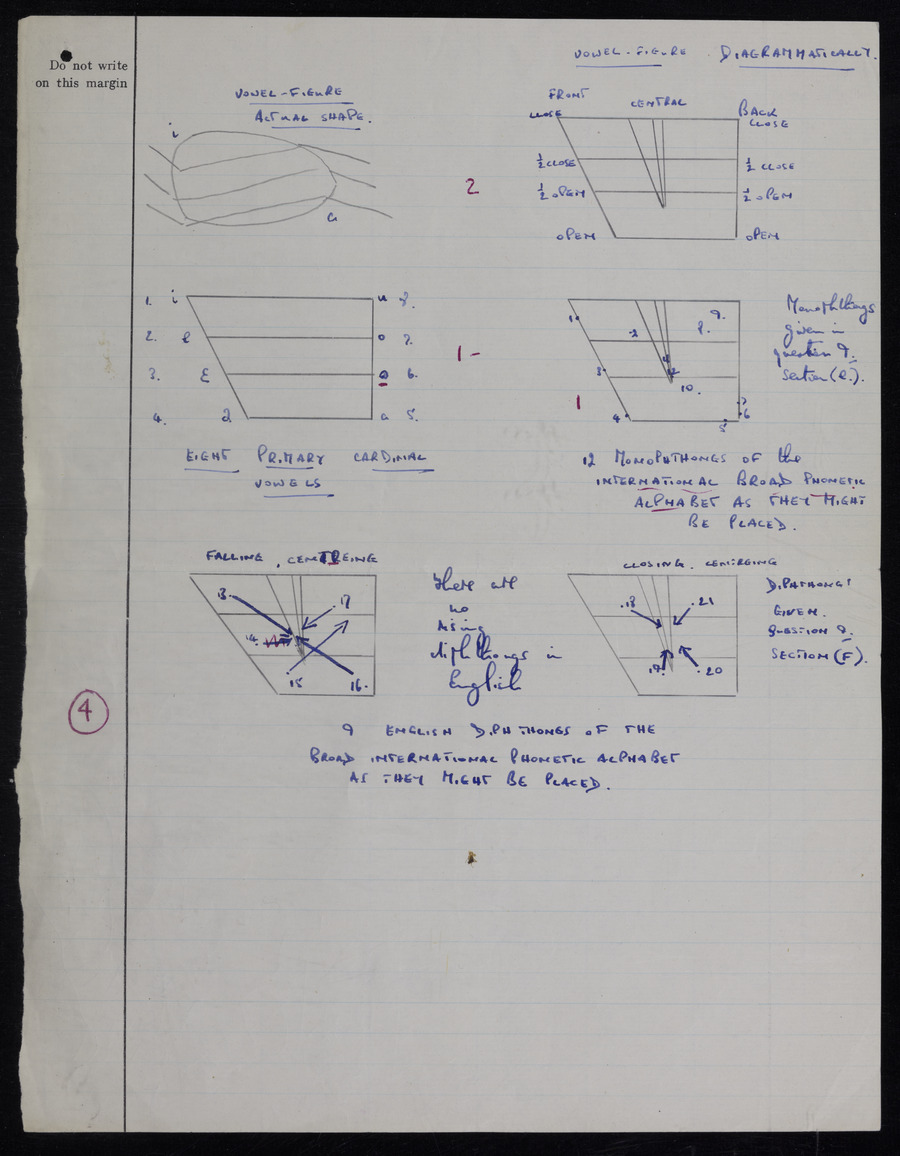 Do not write
on this margin
VOWEL-FIGURE
ACTUAL SHAPE.
i
a
VOWEL-FIGURE DIAGRAMMATICALLY.
FRONT
CENTRAL
BACK
CLOSE
CLOSE
½ CLOSE
½ CLOSE
2
½ OPEN
½ OPEN
OPEN
OPEN
1. i u 8.
2. e o 7.
3. ɛ ɔ 6.
4. a ɑ 5.
EIGHT PRIMARY CARDINAL
VOWELS
1-
1
1.
2
3.
4.
5
6
7
8.
9.
10.
Monophthongs
given in
question 9.
Section (e.).
12 MONOPHTHONGS OF the
INTERNATIONAL BROAD PHONETIC
ALPHABET AS THEY MIGHT
BE PLACED.
FALLING, CENTREING
13.
17
14.
15
16.
there are
no
rising
diphthongs in
English
CLOSING. CENTREING
.18
.21
19.
.20
DIPHTHONGS
GIVEN.
QUESTION 9.
SECTION (F).
4
9 ENGLISH DIPHTHONGS OF THE
BROAD INTERNATIONAL PHONETIC ALPHABET
AS THEY MIGHT BE PLACED.